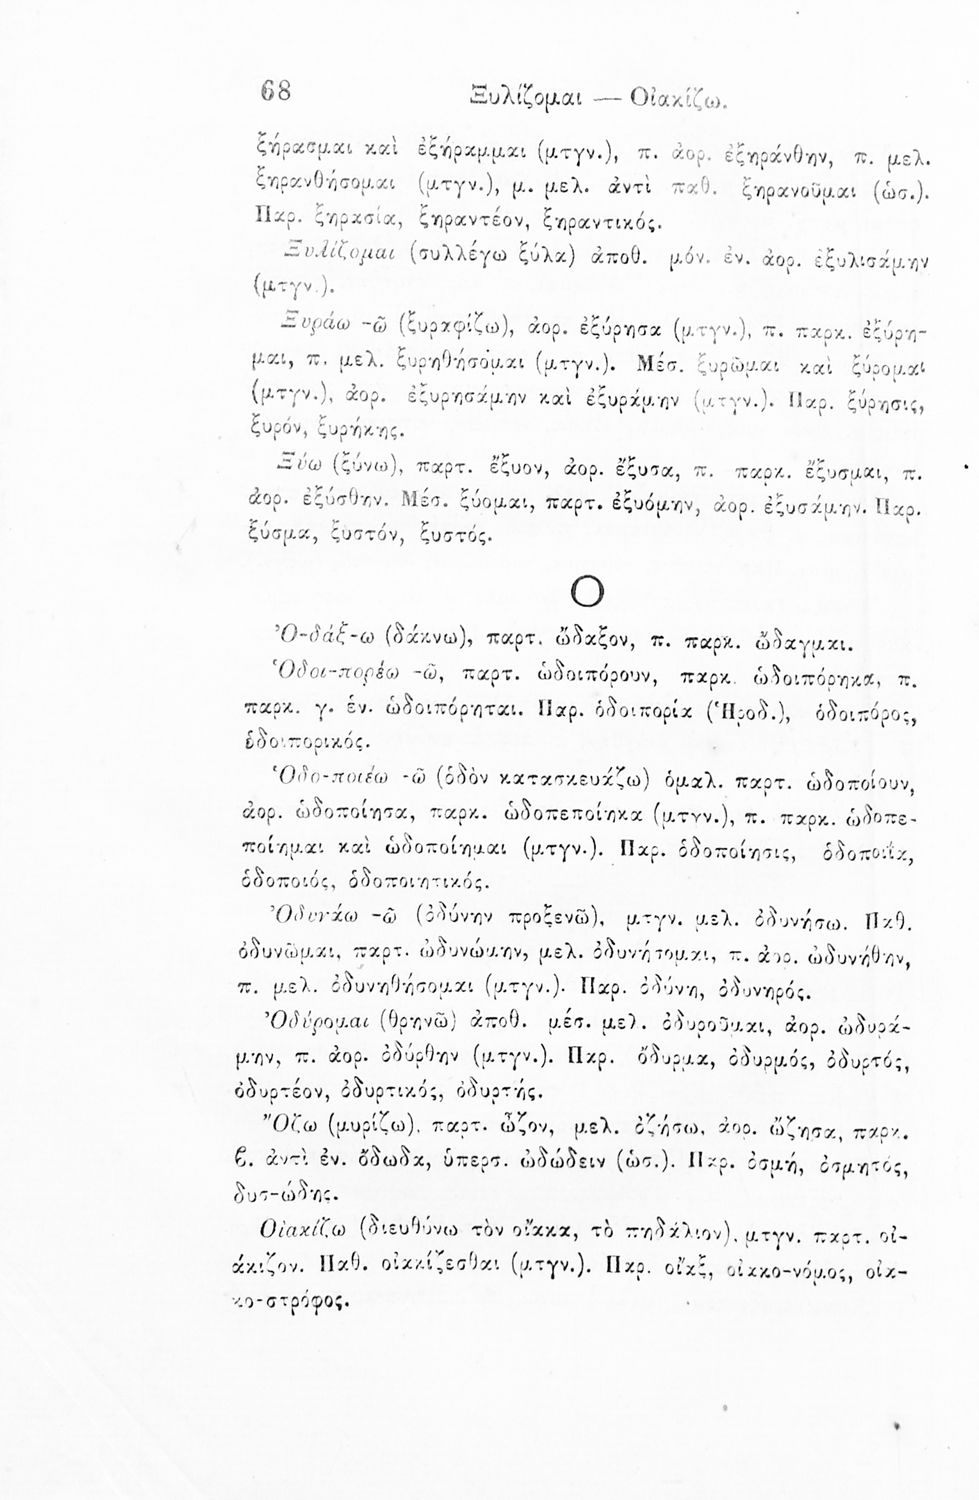 68 Ξυλίζομαι — Οἰακίζω.
ξήρασμαι καὶ ἐξήραμμαι (μτγν.), π. ἀορ. ἐξηράνθην, π. μελ.
ξηρανθήσομαι (μτγν.), μ. μελ. ἀντὶ παθ. ξηρανοῦμαι (ὡσ.).
Παρ. ξηρασία, ξηραντέον, ξηραντικός.
Ξυλίζομαι (συλλέγω ξύλα) ἀποθ. μόν. ἐν. ἀορ. ἐξυλισάμην
(μτγν.).
Ξυράω -ῶ (ξυραφίζω), ἀορ. ἐξύρησα (μτγν.), π. παρκ. ἐξύρη-
μαι, π. μελ. ξυρηθήσομαι (μτγν.). Μέσ. ξυρῶμαι καὶ ξύρομαι
(μτγν.), ἀορ. ἐξυρησάμην καὶ ἐξυράμην (μτγν.). Παρ. ξύρησις,
ξυρόν, ξυρήκης.
Ξύω (ξύνω), παρτ. ἔξυον, ἀορ. ἔξυσα, π. παρκ. ἔξυσμαι, π.
ἀορ. ἐξύσθην. Μέσ. ξύομαι, παρτ. ἐξυόμην, ἀορ. ἐξυσάμην. Παρ.
ξύσμα, ξυστόν, ξυστός.
Ο
Ὀ-δάξ-ω (δάκνω), παρτ. ὤδαξον, π. παρκ. ὤδαγμαι.
Ὁδοι-πορέω -ῶ, παρτ. ὡδοιπόρουν, παρκ. ὡδοιπόρηκα, π.
παρκ. γ. ἑν. ὡδοιπόρηται. Παρ. ὁδοιπορία (Ἡροδ.), ὁδοιπόρος,
ὁδοιπορικός.
Ὁδο-ποιέω -ῶ (ὁδὸν κατασκευάζω) ὁμαλ. παρτ. ὡδοποίουν,
ἀορ. ὡδοποίησα, παρκ. ὡδοπεποίηκα (μτγν.), π. παρκ. ὡδοπε-
ποίημαι καὶ ὡδοποίημαι (μτγν.). Παρ. ὁδοποίησις, ὁδοποιΐα,
ὁδοποιός, ὁδοποιητικός.
Ὀδυνάω -ῶ (ὀδύνην προξενῶ), μτγν. μελ. ὀδυνήσω. Παθ.
ὀδυνῶμαι, παρτ. ὠδυνώμην, μελ. ὀδυνήσομαι, π. ἀορ. ὠδυνήθην,
π. μελ. ὀδυνηθήσομαι (μτγν.). Παρ. ὀδύνη, ὀδυνηρός.
Ὀδύρομαι (θρηνῶ) ἀποθ. μέσ. μελ. ὀδυροῦμαι, ἀορ. ὠδυρά-
μην, π. ἀορ. ὀδύρθην (μτγν.). Παρ. ὄδυρμα, ὀδυρμός, ὀδυρτός,
ὀδυρτέον, ὀδυρτικός, ὀδυρτής.
Ὄζω (μυρίζω), παρτ. ὦζον, μελ. ὀζήσω, ἀορ. ὤζησα, παρκ.
ϐ. ἀντὶ ἐν. ὄδωδα, ὑπερσ. ὠδώδειν (ὡσ.). Παρ. ὀσμή, ὀσμητός,
δυσ-ώδης.
Οἰακίζω (διευθύνω τὸν οἴακα, τὸ πηδάλιον), μτγν. παρτ. οἰ-
άκιζον. Παθ. οἰακίζεσθαι (μτγν.). Παρ. οἴαξ, οἰακο-νόμος, οἰα-
κο-στρόφος.